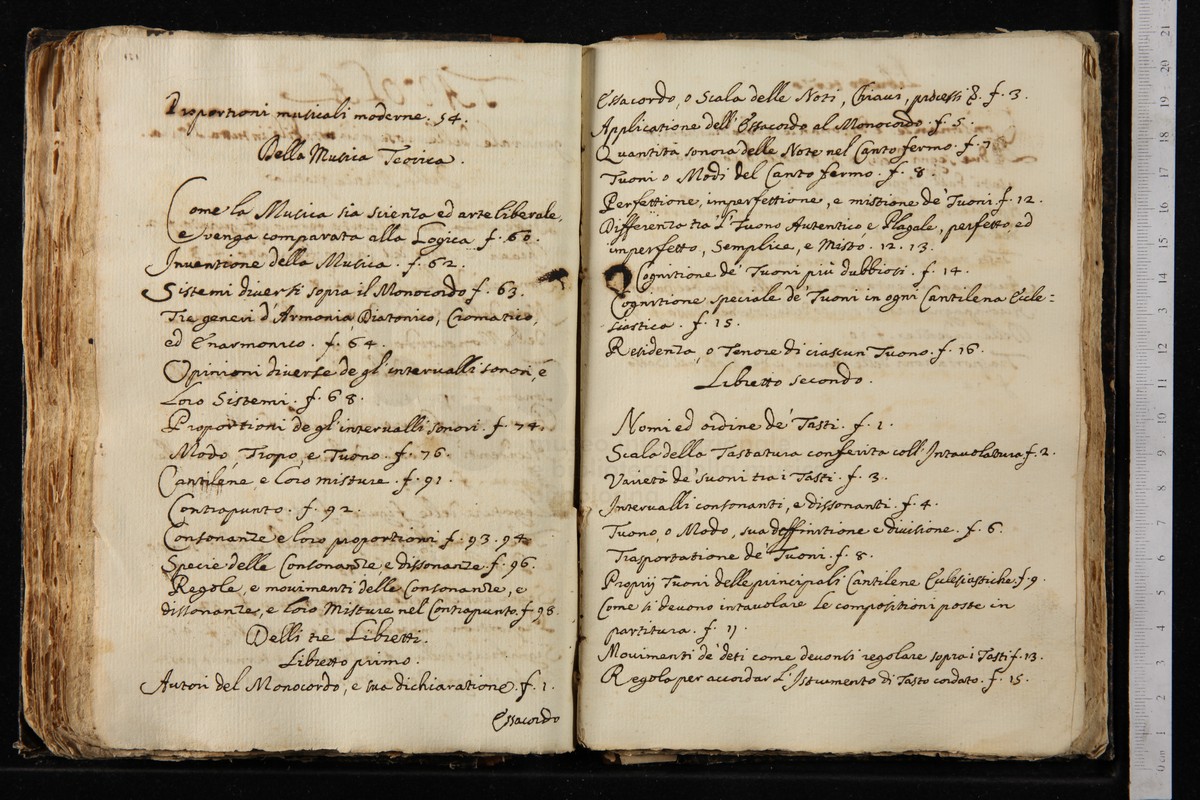 Proportioni musicali moderne. 54.
Della Musica Teorica.
Come la Musica sia scienza ed arte liberale,
e venga comparata alla Logica f. 60.
Inventione della Musica. f. 62.
Sistemi diversi sopra il Monocordo f. 63.
Tre generi d'Armonia, Diatonico, Cromatico,
ed Enarmonico. f. 64.
Opinioni diverse degl'intervalli sonori, e
loro Sistemi. f. 68.
Proportioni degl'intervalli sonori. f. 74.
Modo, Tropo, e Tuono. f. 76.
Cantilene, e loro misture. f. 91.
Contrapunto. f. 92.
Consonanze e loro proportioni f. 93. 94.
Specie delle Consonanze, e dissonanze. f. 96.
Regole, e movimenti delle Consonanze, e
dissonanze, e loro Misture nel Contrapunto. f. 98.
Delli tre Libretti.
Libretto primo.
Autori del Monocordo, e sua dichiaratione. f. 1.
Essacordo
Essacordo, o Scala delle Noti, Chiavi, processi &. f. 3.
Applicatione dell'Essacordo al Monocordo. f. 5.
Quantità sonora delle Note nel Canto fermo. f. 7
Tuoni o Modi del Canto fermo. f. 8.
Perfettione, imperfettione, e mistione de' Tuoni. f. 12.
Differenza trà l'Tuono Autentico, e Plagale, perfetto, ed
imperfetto, Semplice, e Misto. 12. 13.
Cognitione de' Tuoni più dubbiosi. f. 14.
Cognitione speciale de' Tuoni in ogni Cantilena Eccle=
siastica. f. 15.
Residenza, o Tenore di ciascun Tuono. f. 16.
Libretto secondo.
Nomi ed ordine de' Tasti. f. 1.
Scala della Tastatura conferita coll'Intavolattura f. 2.
Varietà de' suoni tra i Tasti. f. 3.
Intervalli consonanti, e dissonanti. f. 4.
Tuono, o Modo, sua deffinitione e divisione. f. 6.
Trasportatione de' Tuoni. f. 8.
Proprij Tuoni delle principali Cantilene Ecclesiastiche. f. 9.
Come si devono intavolare le compositioni poste in
partitura. f. 11.
Movimenti de' deti come devonsi regolare sopra i Tasti f. 13.
Regola per accordar l'Istrumento di Tasto cordato. f. 15.